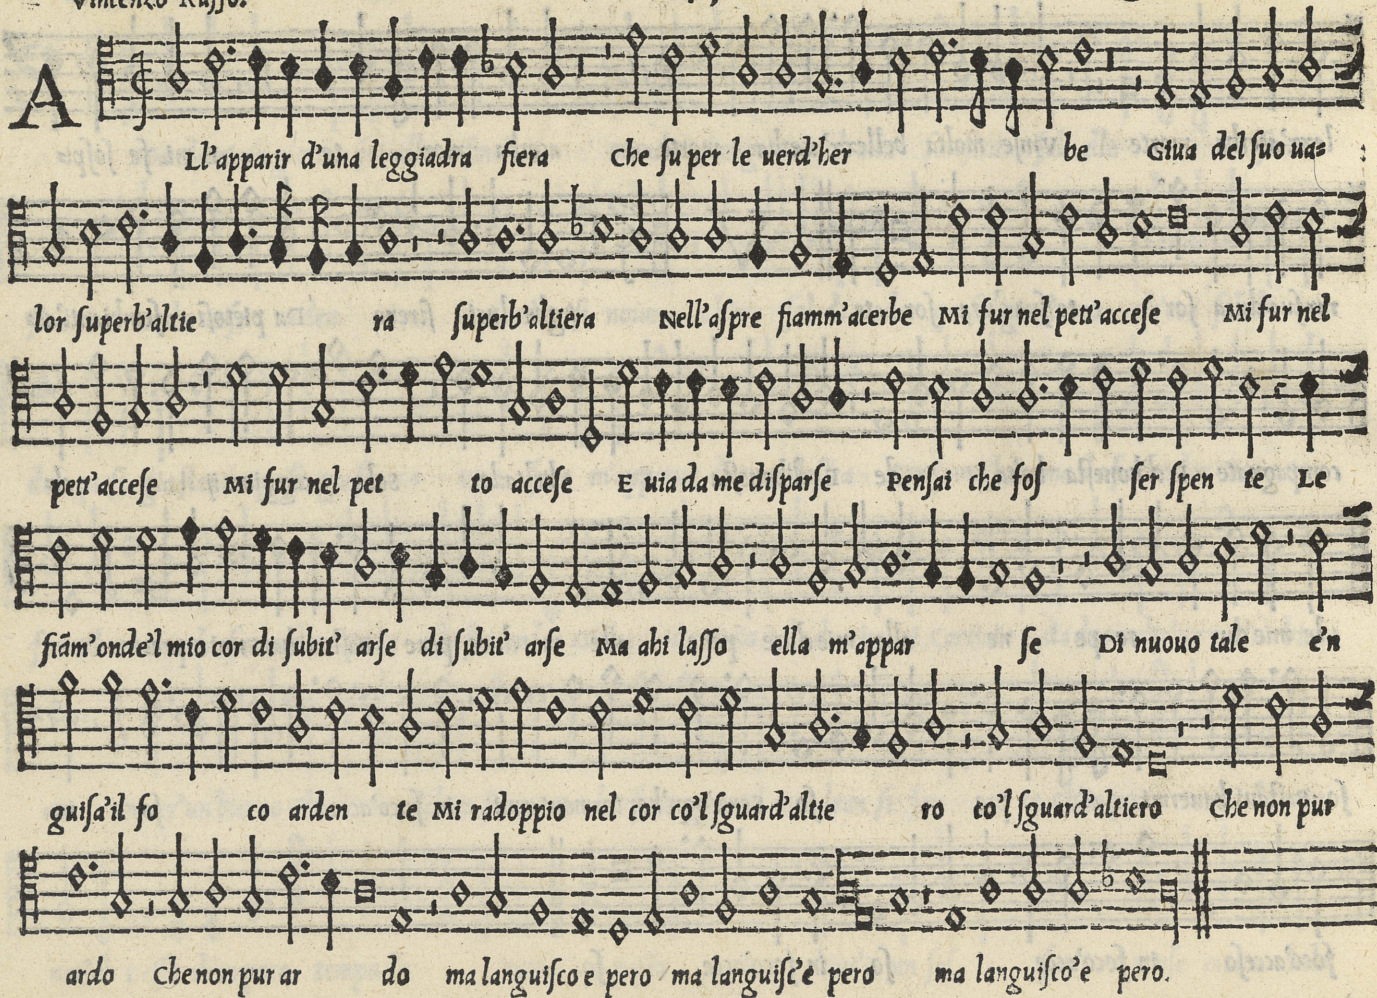 Vincenzo Ruffo.
A
Ll'apparir d'una leggiadra fiera Che su per le uerd'her be Giua del suo ua=
lor superb'altie ra superb'altiera Nell'aspre fiamm'acerbe Mi fur nel pett'accese Mi fur nel
pett'accese Mi fur nel pet to accese E uia da me disparse Pensai che fos ser spen te Le
fiãm'onde'l mio cor di subit' arse di subit' arse Ma ahi lasso ella m'appar se Di nuouo tale e'n
guisa'il fo co arden te Mi radoppio nel cor co'l sguard'altie ro co'l sguard'altiero Che non pur
ardo Che non pur ar do ma languisco e pero ma languisc'e pero ma languisco e pero.